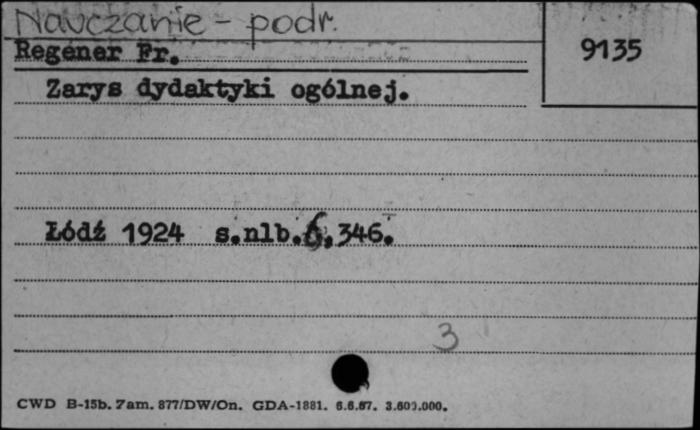 Nauczanie - podr.
Regener Fr.
9135
Zarys dydaktyki ogólnej.
Łódź 1924 s.nlb.6,346.
3
CWD B-15b. Zam. 877/DW/On. GDA-1881. 6.6.67. 3.600.000.